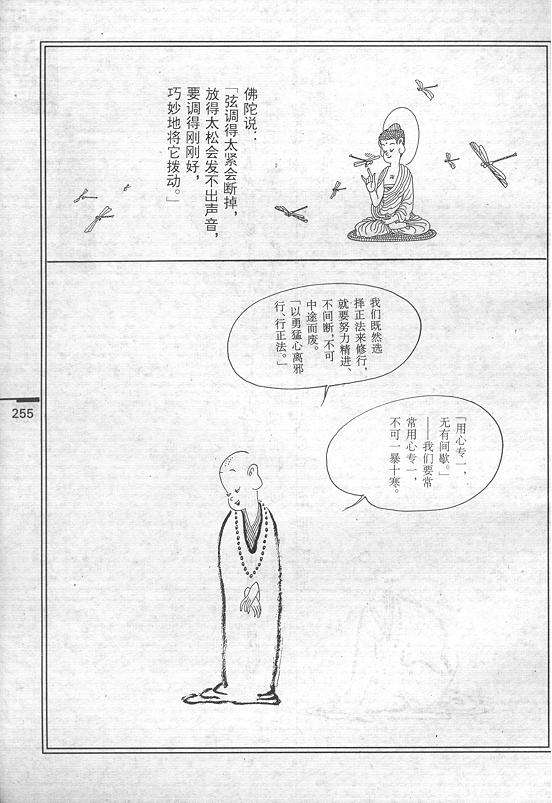 佛陀说：
「弦调得太紧会断掉，
放得太松会发不出声音，
要调得刚刚好，
巧妙地将它拨动。」
我们既然选
择正法来修行，
就要努力精进、
不间断，不可
中途而废。
「以勇猛心离邪
行、行正法。」
「用心专一，
无有间歇。」
——我们要常
常用心专一，
不可一暴十寒。
255